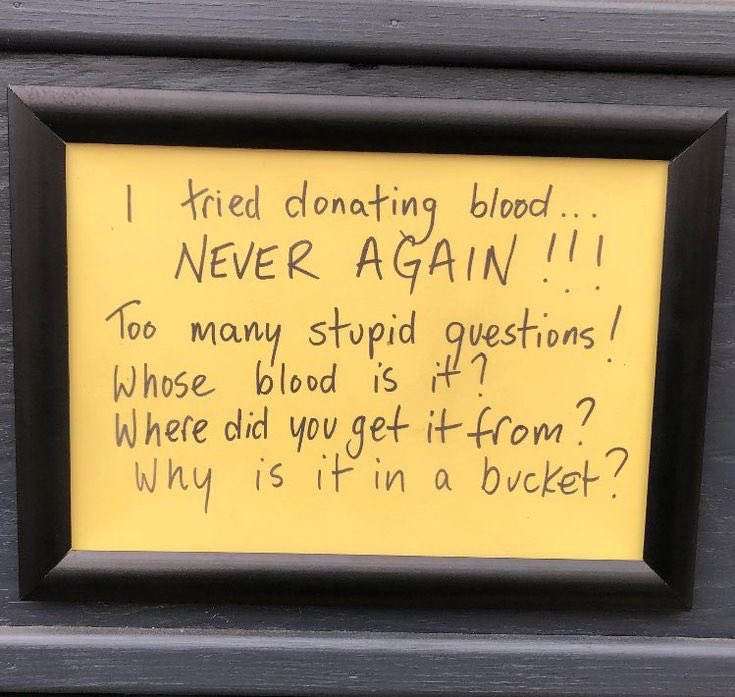 I tried donating blood...
NEVER AGAIN !!!
Too many stupid questions!
Whose blood is it?
Where did you get it from?
Why is it in a bucket?